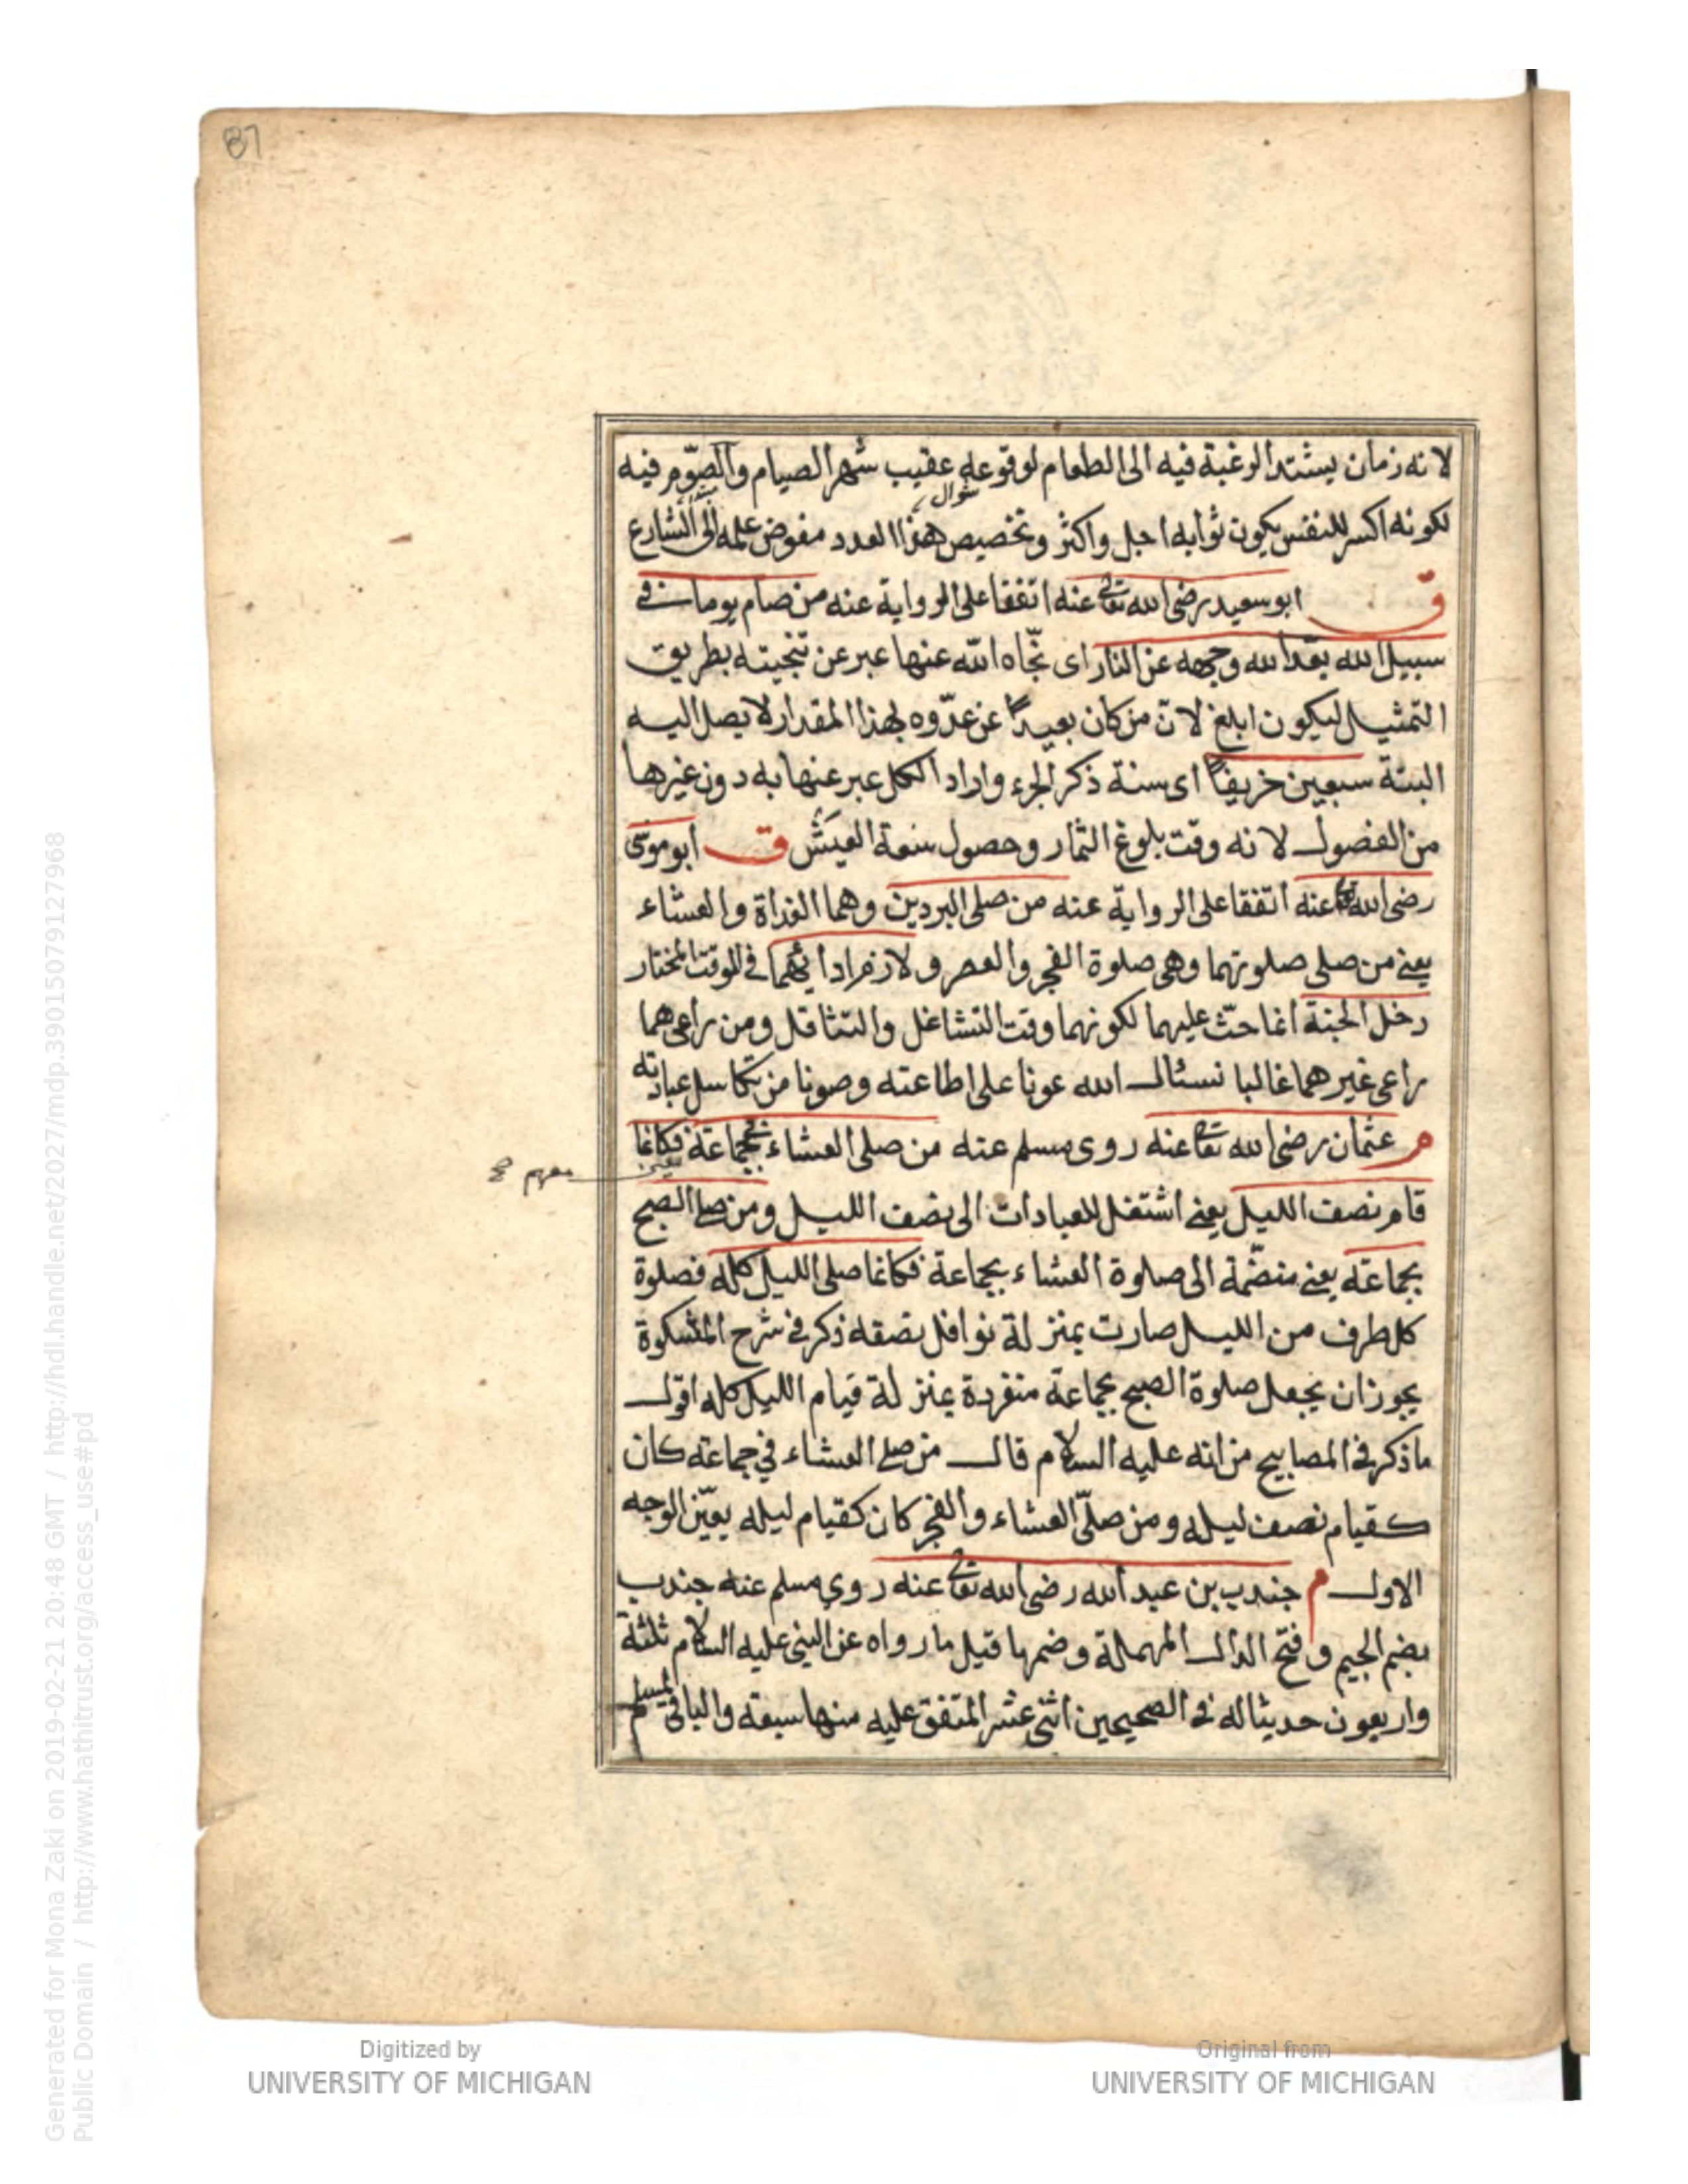 87
لانه زمان يشتد الرغبة فيه الى الطعام لوقوعه عقيب شهر الصيام والصوم فيه
شوال
لكونه اكسر للنفس يكون ثوابه اجل واكثر وتخصيص هذا العدد مفوض علمه الى الشارع
ق ابو سعيد رضى الله تعالى عنه اتفقا على الرواية عنه من صام يوما في
سبيل الله بعّد الله وجهه عن النار اى نجّاه الله عنها عبر عن تنجيته بطريق
التمثيل ليكون ابلغ لانّ من كان بعيدًا عن عدّوه بهذا المقدار لا يصل اليه
البتة سبعين خريفًا اى سنة ذكر الجزء واراد الكل عبر عنها به دون غيرها
من الفصول لانه وقت بلوغ الثمار وحصول سعة العيش ق ابو موسى
رضى الله تعالى عنه اتفقا على الرواية عنه من صلى البردين وهما الغداة والعشاء
يعنى من صلى صلوتهما وهى صلوة الفجر والعصر و اداهما فى الوقت المختار
دخل الجنة انما حثّ عليهما لكونهما وقت التشاغل والتثاقل ومن راعى هما
راعى غيرهما غالبا نسئال الله عونا على اطاعته وصونا من تكاسل عبادته
م عثمان رضى الله تعالى عنه روى مسلم عنه من صلى العشاء بجماعة فكانما
قام نصف الليل يعنى اشتغل للعبادات الى نصف الليل ومن صلى الصبح
بجماعة يعنى منضمّة الى صلوة العشاء بجماعة فكانما صلى الليل كله فصلوة
كل طرف من الليل صارت بمنزلة نوافل نصفه ذكر فى شرح المشكوة
يجوز ان يجعل صلوة الصبح بجماعة منفردة بمنزلة قيام الليل كله اقول
ما ذكر فى المصابيح من انه عليه السلام قال من صلى العشاء في جماعة كان
كقيام نصف ليله ومن صلّى العشاء والفجر كان كقيام ليله يعيّن الوجه
الاول م جندب بن عبد الله رضى الله تعالى عنه روي مسلم عنه جندب
بضم الجيم وفتح الدال المهملة وضمها قيل ما رواه عن النبى عليه السلام ثلثة
واربعون حديثا له فى الصحيحين اثنى عشر المتفق عليه منها سبعة والباقى لمسلم
Digitized by
UNIVERSITY OF MICHIGAN
Original from
UNIVERSITY OF MICHIGAN
Generated for Mona Zaki on 2019-02-21 20:48 GMT / http://hdl.handle.net/2027/mdp.39015079127968
Public Domain / http://www.hathitrust.org/access_use#pd